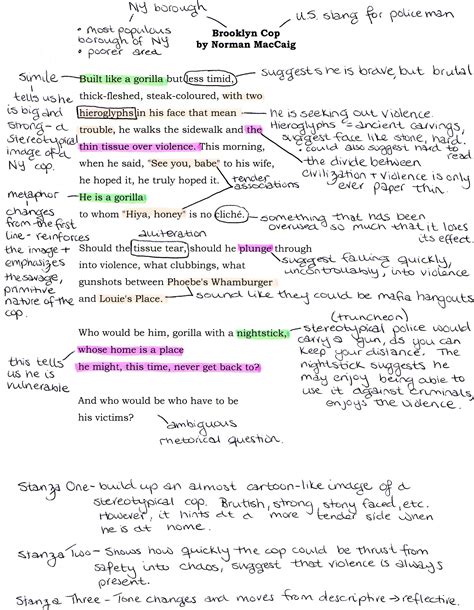 NY borough
U.S. slang for policeman
• most populous
borough of NY
• poorer area
Brooklyn Cop
by Norman MacCaig
simile
tells us he
is big and
strong - a
stereotypical
image of a
NY cop.
Built like a gorilla but less timid,
thick-fleshed, steak-coloured, with two
hieroglyphs in his face that mean
trouble, he walks the sidewalk and the
thin tissue over violence. This morning,
when he said, "See you, babe" to his wife,
he hoped it, he truly hoped it.
He is a gorilla
to whom "Hiya, honey" is no cliché.
suggests he is brave, but brutal
he is seeking out violence.
Hieroglyphs = ancient carvings,
suggest face like stone, hard.
• could also suggest hard to
read
the divide between
civilization + violence is only
ever paper thin.
tender
associations
metaphor
changes
from the first
line - reinforces
the image +
emphasizes
the savage,
primitive
nature of the
cop.
something that has been
overused so much that it loses
its effect.
alliteration
Should the tissue tear, should he plunge through
into violence, what clubbings, what
gunshots between Phoebe's Whamburger
and Louie's Place.
suggest falling quickly,
uncontrollably, into violence
sound like they could be mafia hangouts
Who would be him, gorilla with a nightstick,
whose home is a place
he might, this time, never get back to?
(truncheon)
stereotypical police would
carry a gun, as you can
keep your distance. The
nightstick suggests he
may enjoy being able to
use it against criminals,
enjoys the violence.
this tells
us he is
vulnerable
And who would be who have to be
his victims?
ambiguous
rhetorical question.
Stanza One - build up an almost cartoon-like image of a
stereotypical cop. Brutish, strong, stony faced, etc.
However, it hints at a more tender side when
he is at home.
Stanza Two - Shows how quickly the cop could be thrust from
safety into chaos, suggest that violence is always
present.
Stanza Three - Tone changes and moves from descriptive → reflective.